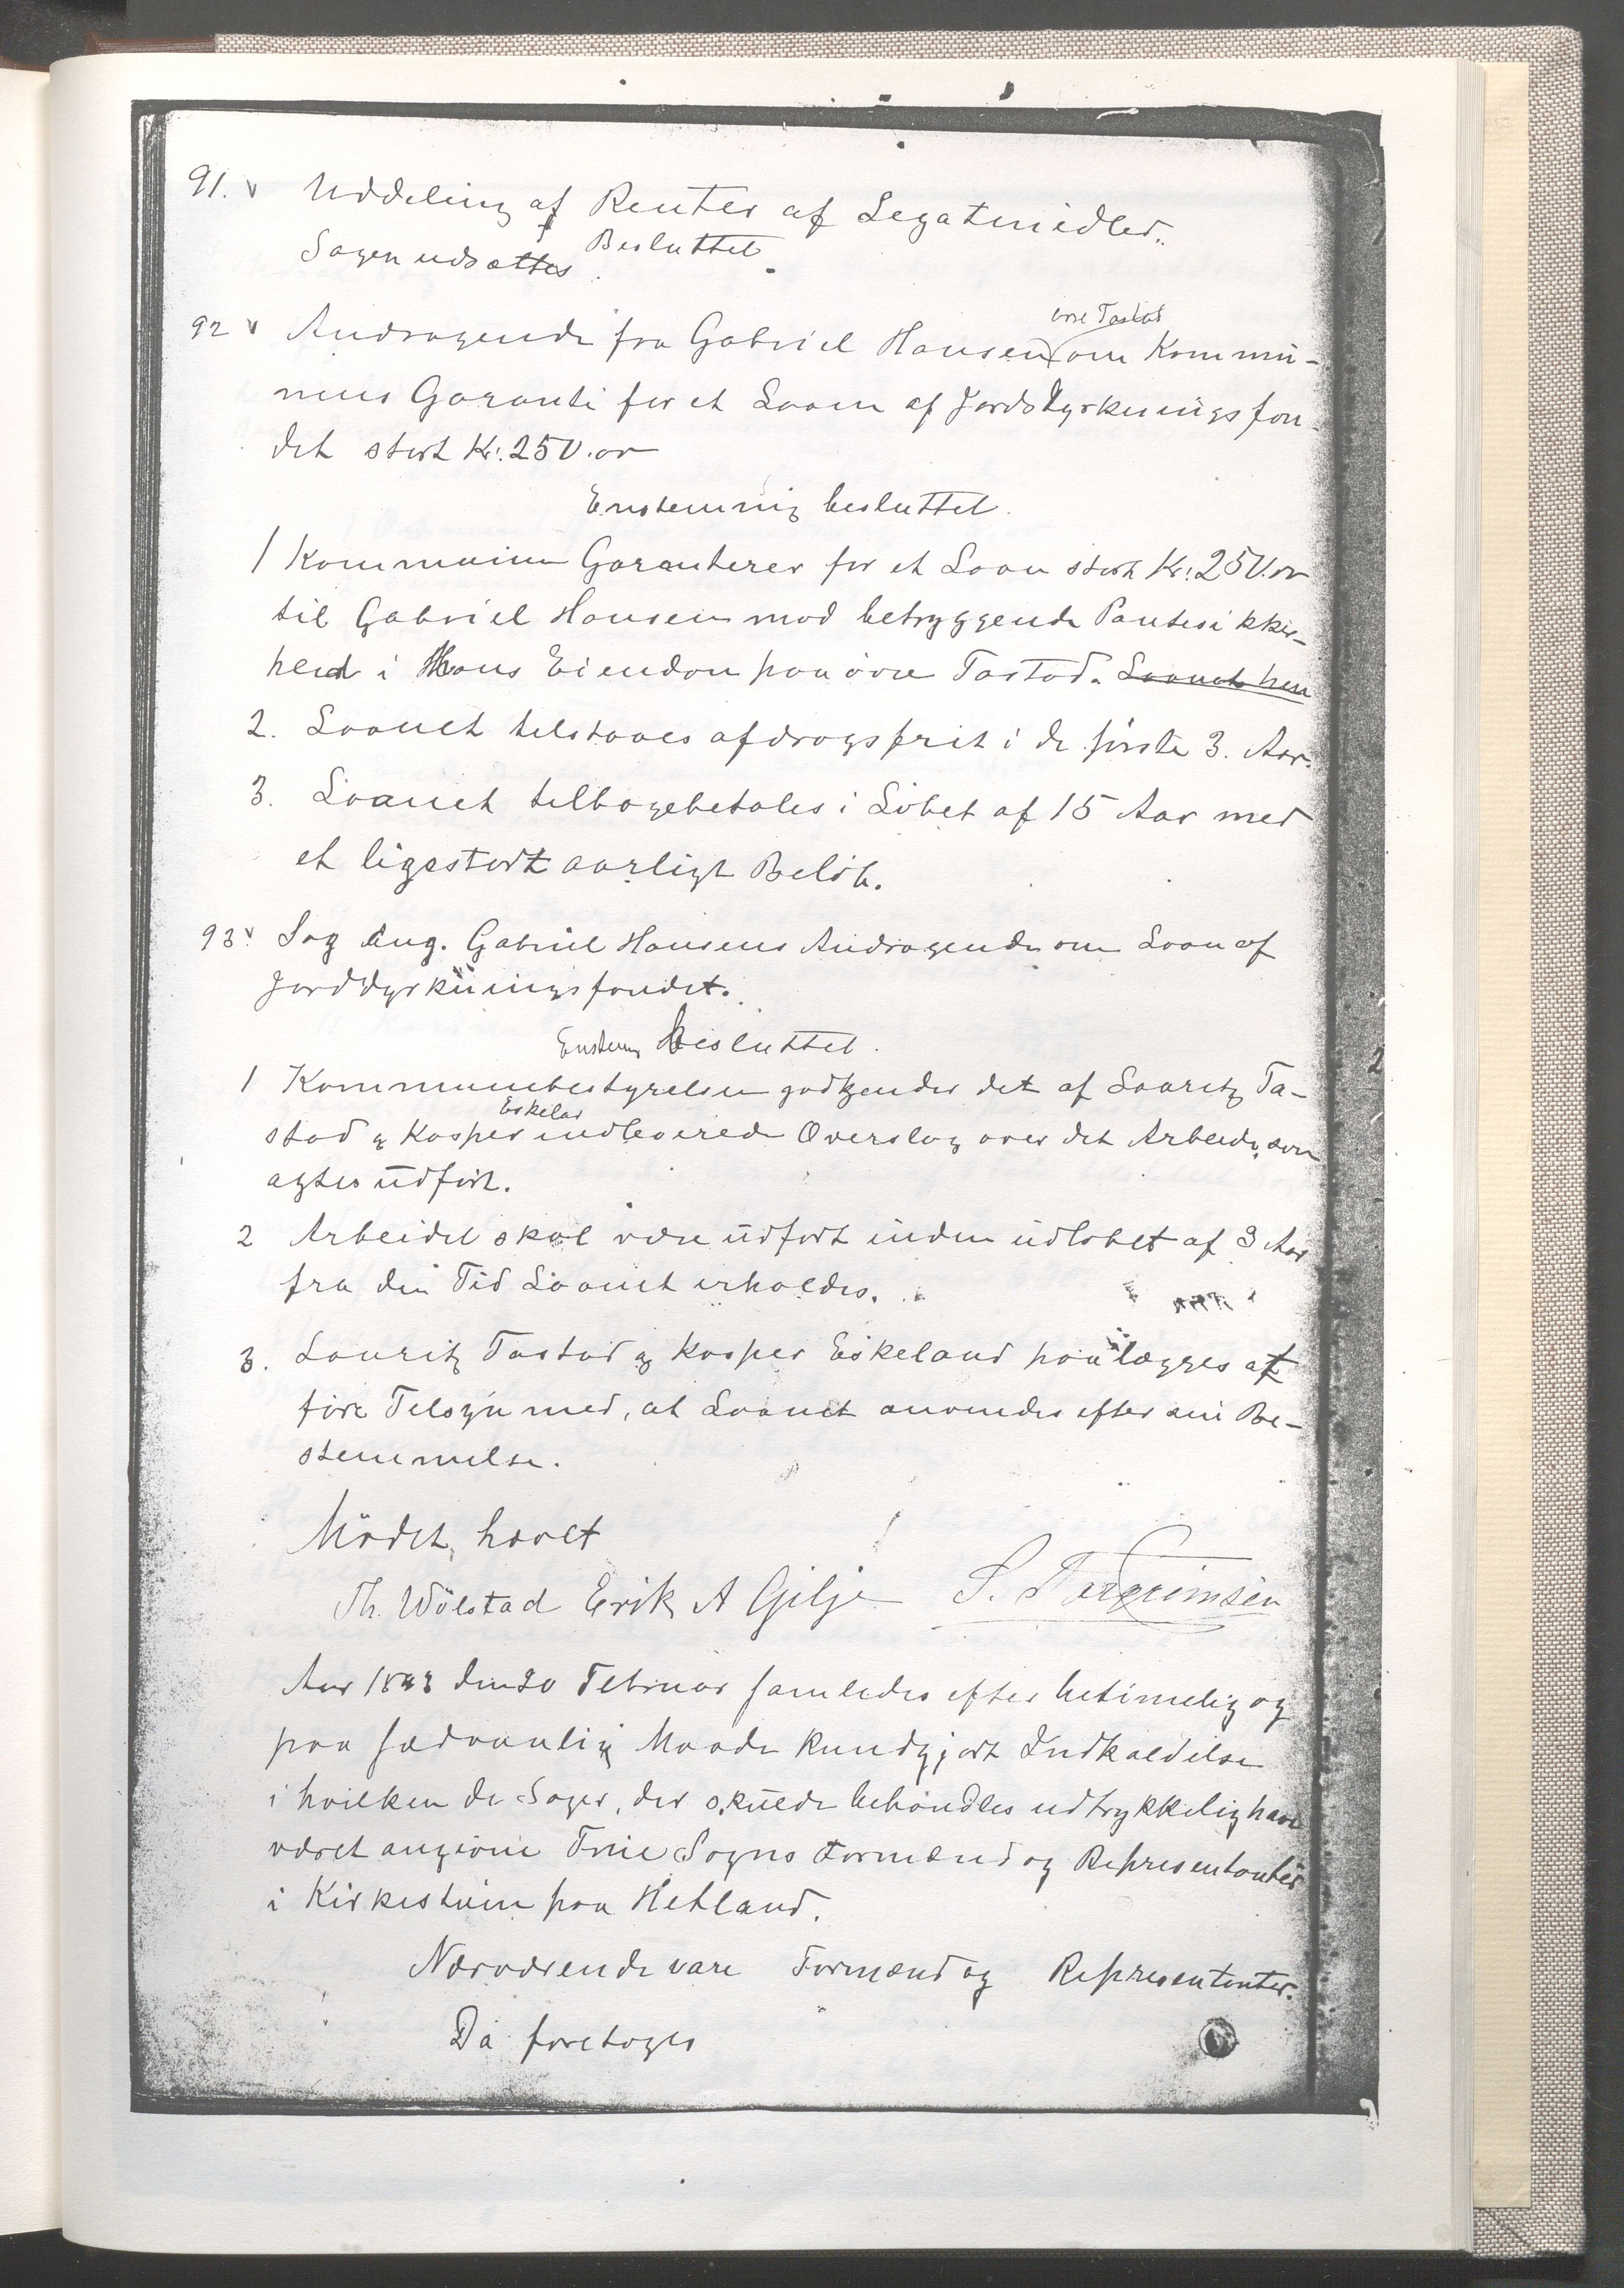 91. v Uddeling af Renter af Legatmidler.
Besluttet.
Sagen udsættes.
øvre Tastad
92 v Andragende fra Gabriel Hansen om Kommu-
nens Garanti for et Laan af Jorddyrkningsfon-
det stort Kr. 250.00
Enstemmig besluttet.
1 Kommunen Garanterer for et Laan stort Kr. 250.00
til Gabriel Hansen mod betryggende Pantesikker-
hed i Hans Eiendom paa øvre Tastad. Laanet hen
2. Laanet tilstaaes afdragsfrit i de første 3. Aar.
3. Laanet tilbagebetales i Løbet af 15 Aar med
et ligestort aarligt Beløb.
93 v Sag ang. Gabriel Hansens Andragende om Laan af
Jorddyrkningsfondet.
Enstem besluttet.
1 Kommunebestyrelsen godkjender det af Lauritz Ta-
Eskelan
stad og Kasper indleverede Overslag over det Arbeide, som
agtes udført.
2 Arbeidet skal være udført inden udløbet af 3 Aar
fra den Tid Laanet erholdes.
3. Lauritz Tastad og Kasper Eskeland paalægges at
føre Tilsyn med, at Laanet anvendes efter sin Be-
stemmelse.
Mødet hævet
Th. Wølstad Erik A Gilje S. Torgrimsen
Aar 1893 den 20 Februar samledes efter betimelig og
paa sædvanlig Maade kundgjort Indkaldelse
i hvilken de Sager, der skulde behandles udtrykkelig have
været angivne Frue Sogns Formænd og Repræsentanter
i Kirkestuen paa Hetland.
Nærværende vare Formænd og Repræsentanter.
Da foretoges